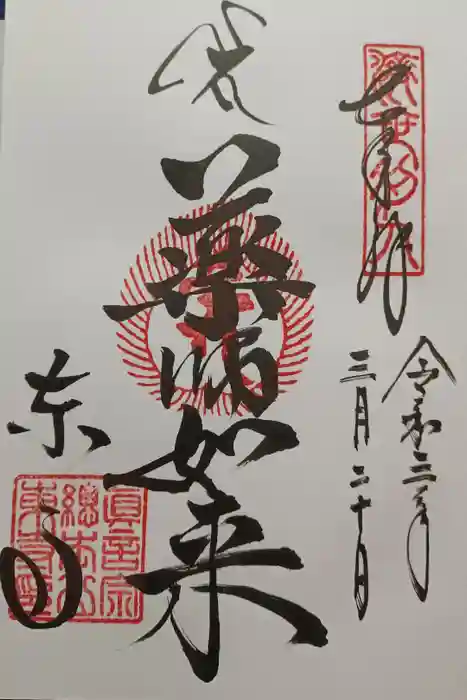 奉拝
令和三年
三月二十日
薬師如来
東寺
真言宗
総本山
東寺印